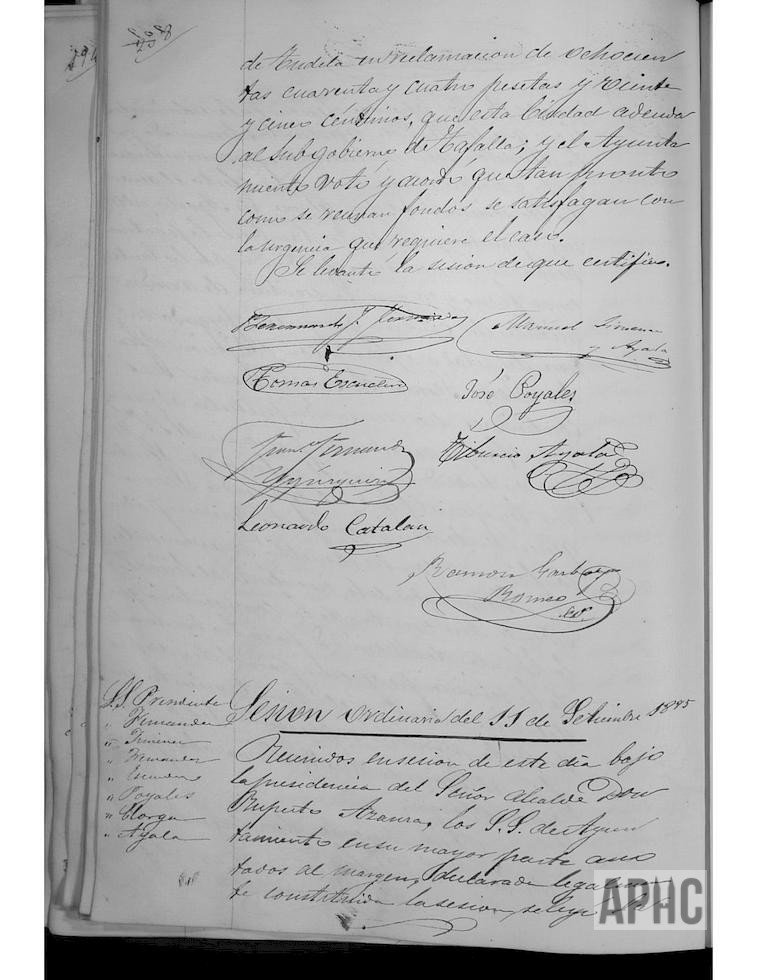 de Tudela en reclamacion de ochocien
tas cuarenta y cuatro pesetas y veinte
y cinco céntimos, que esta Ciudad adeuda
al Subgobierno de Tafalla; y el Ayunta
miento votó y acordó que tan pronto
como se reunan fondos se satisfagan con
la urgencia que requiere el caso.
Se levantó la sesion de que certifico.
Manuel Jimenez
y Ayala
Tomas Escudero
José Poyales
Fernand
Tiburcio Ayala
Leonardo Catalan
Ramon
Romeo
Sesion ordinaria del 11 de Setiembre 1885
S.S. Presidente
" Fernandez
" Jimenez
" Fernandez
" Escudero
" Poyales
" Ayala
Reunidos en sesion de este dia bajo
la presidencia del Señor Alcalde Don
Ruperto los S.S. de Ayun
tamiento en su mayor parte ano
tados al margen, declarada legalmen
te constituida la sesion, se leyó
APHC